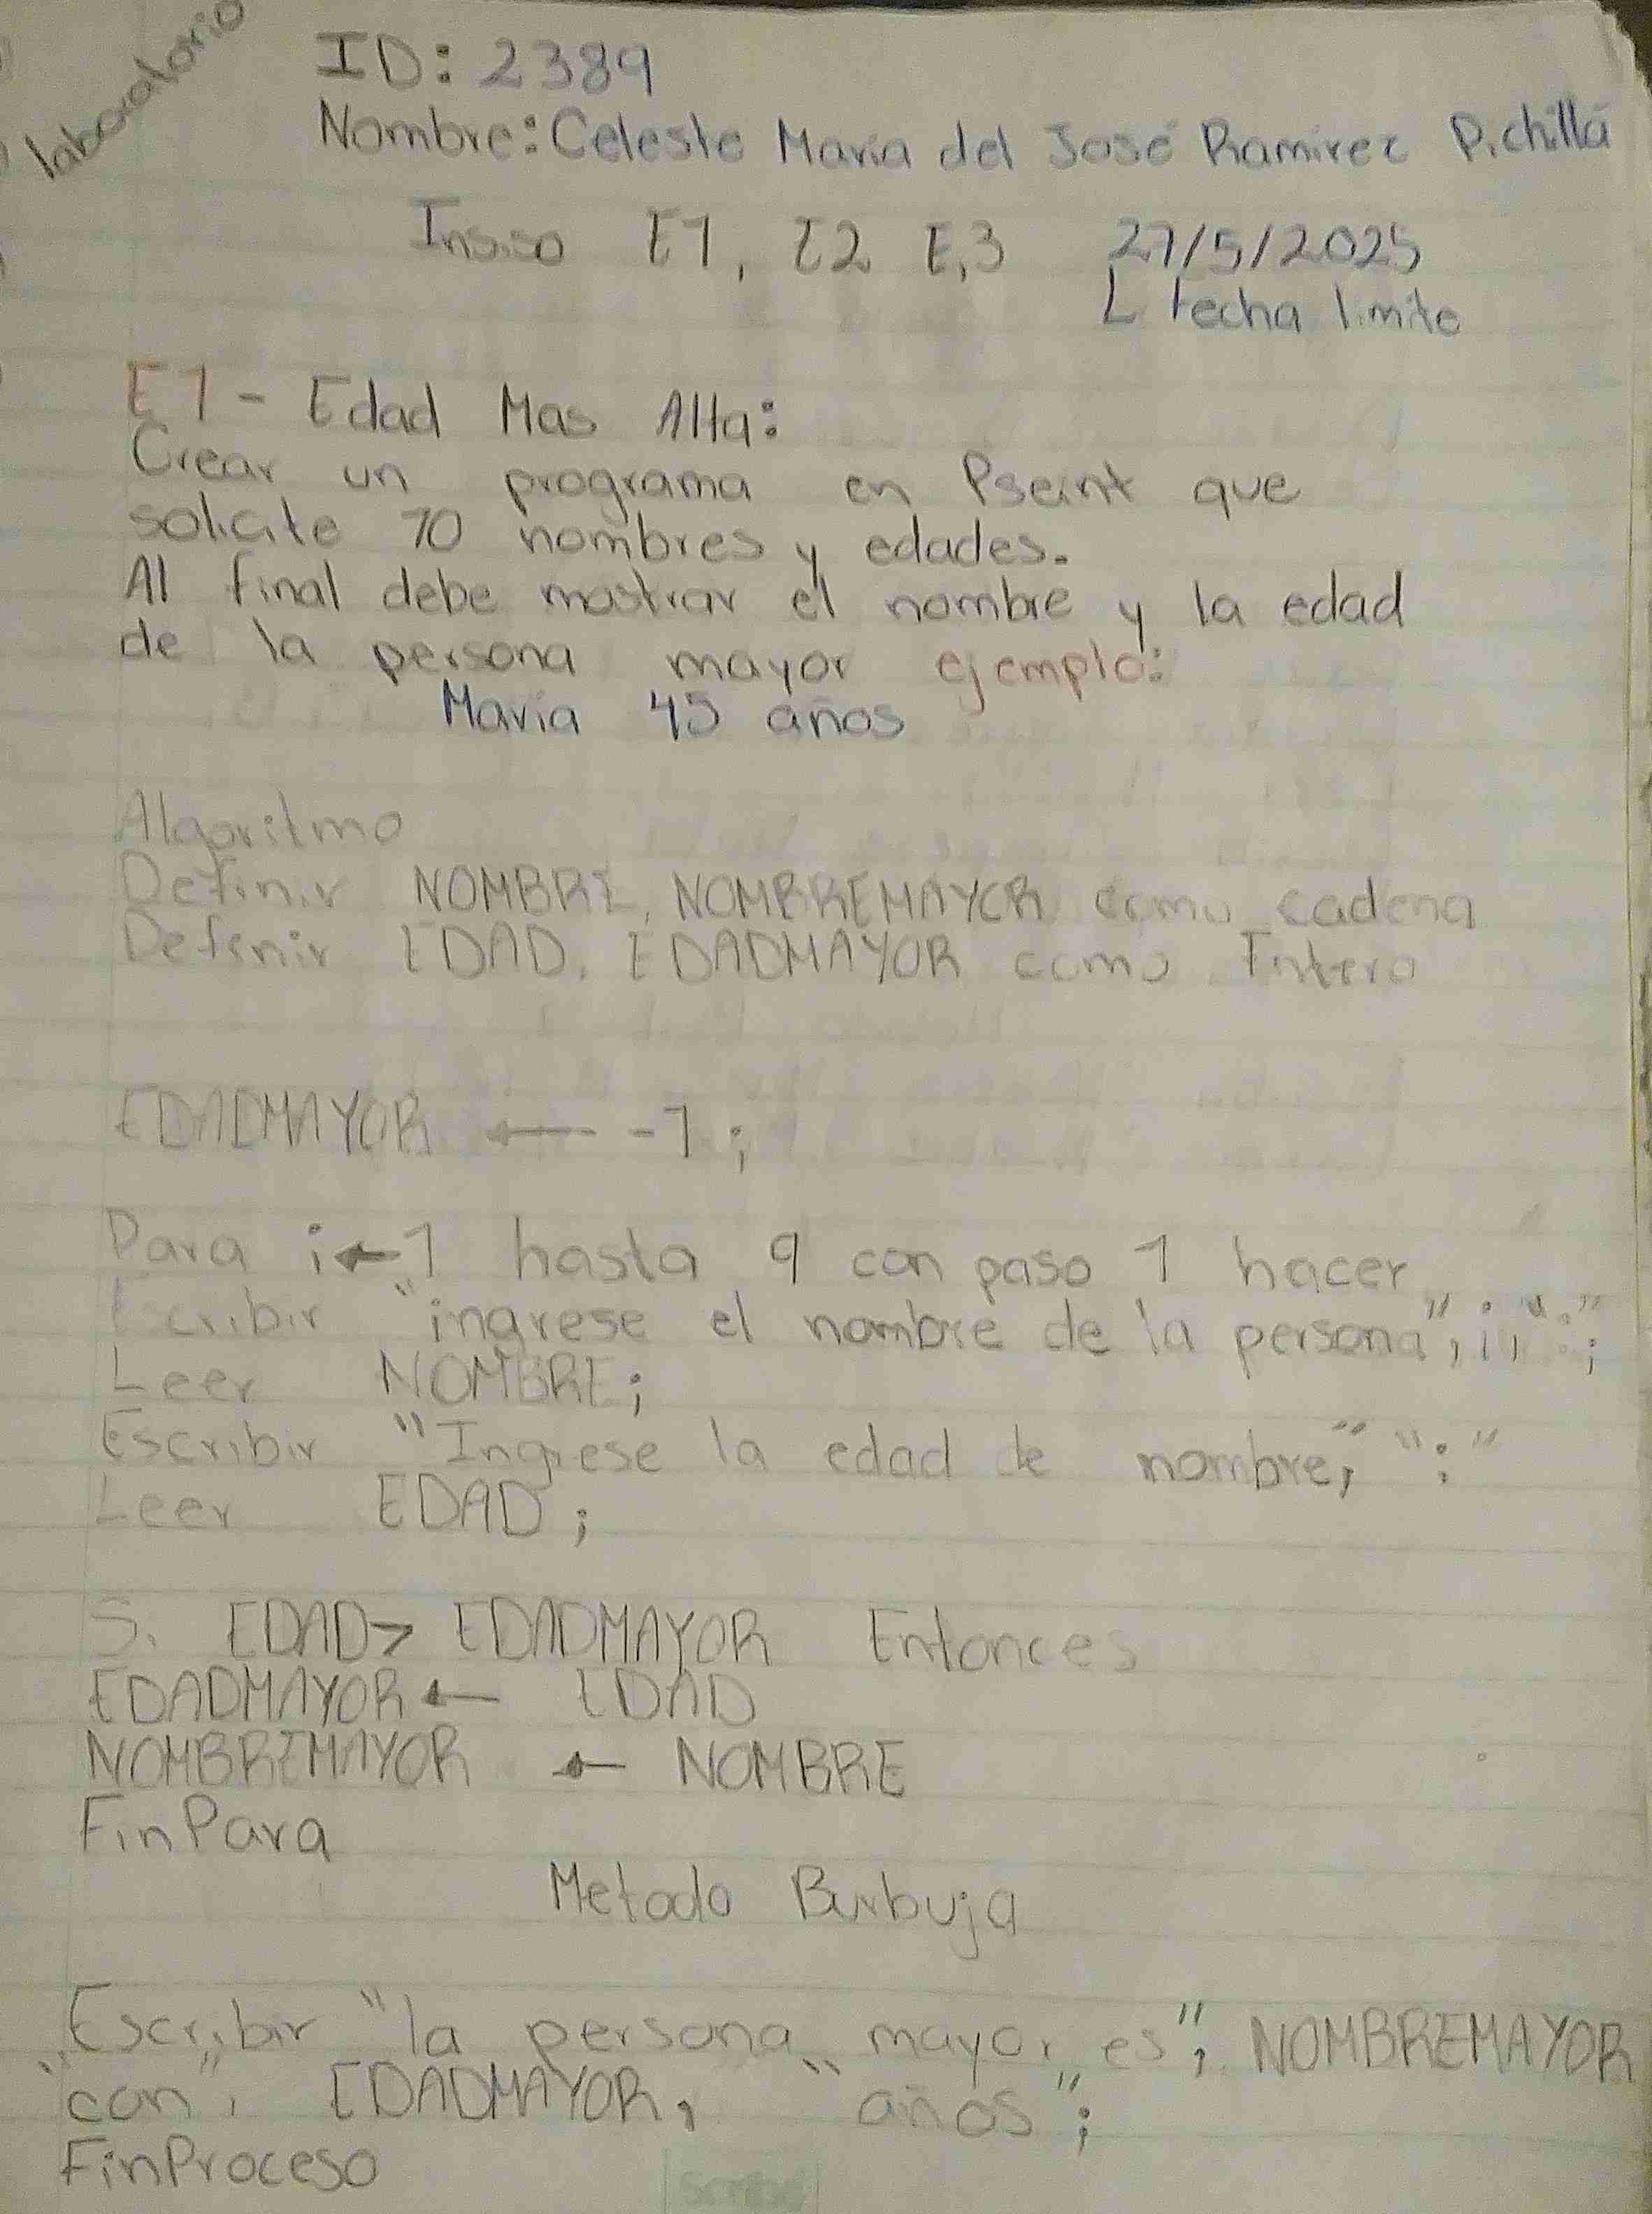 laboratorio
ID: 2389
Nombre: Celeste María del José Ramirez Pichillá
Insiso E1, E2 E,3 27/5/2025
L fecha limite
E1 - Edad Mas Alta:
Crear un programa en Pseint que
solicite 10 nombres y edades.
Al final debe mostrar el nombre y la edad
de la persona mayor ejemplo:
María 45 años
Algoritmo
Definir NOMBRE, NOMBREMAYOR como cadena
Definir EDAD, EDADMAYOR como Entero
EDADMAYOR ← -1;
Para i ← 1 hasta 9 con paso 1 hacer
Escribir "ingrese el nombre de la persona", i, ":";
Leer NOMBRE;
Escribir "Ingrese la edad de nombre," ":"
Leer EDAD;
Si EDAD > EDADMAYOR Entonces
EDADMAYOR ← EDAD
NOMBREMAYOR ← NOMBRE
FinPara
Metodo Burbuja
Escribir "la persona mayor es", NOMBREMAYOR
"con", EDADMAYOR, "años";
FinProceso
Scribe